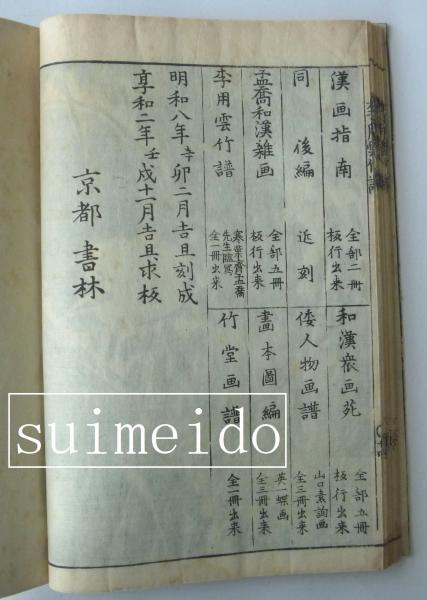 漢画指南
全部二冊
板行出来
和漢衆画苑
全部五冊
板行出来
同 後編
近刻
倭人物画譜
山口素詢画
全三冊出来
孟喬和漢雑画
全部五冊
板行出来
畫本圖編
英一蝶画
全三冊出来
李用雲竹譜
寒葉齋孟喬
先生臨寫
全一冊出来
竹堂画譜
全一冊出来
明和八年辛卯二月吉旦刻成
享和二年壬戌十一月吉旦求板
京都 書林
suimeido